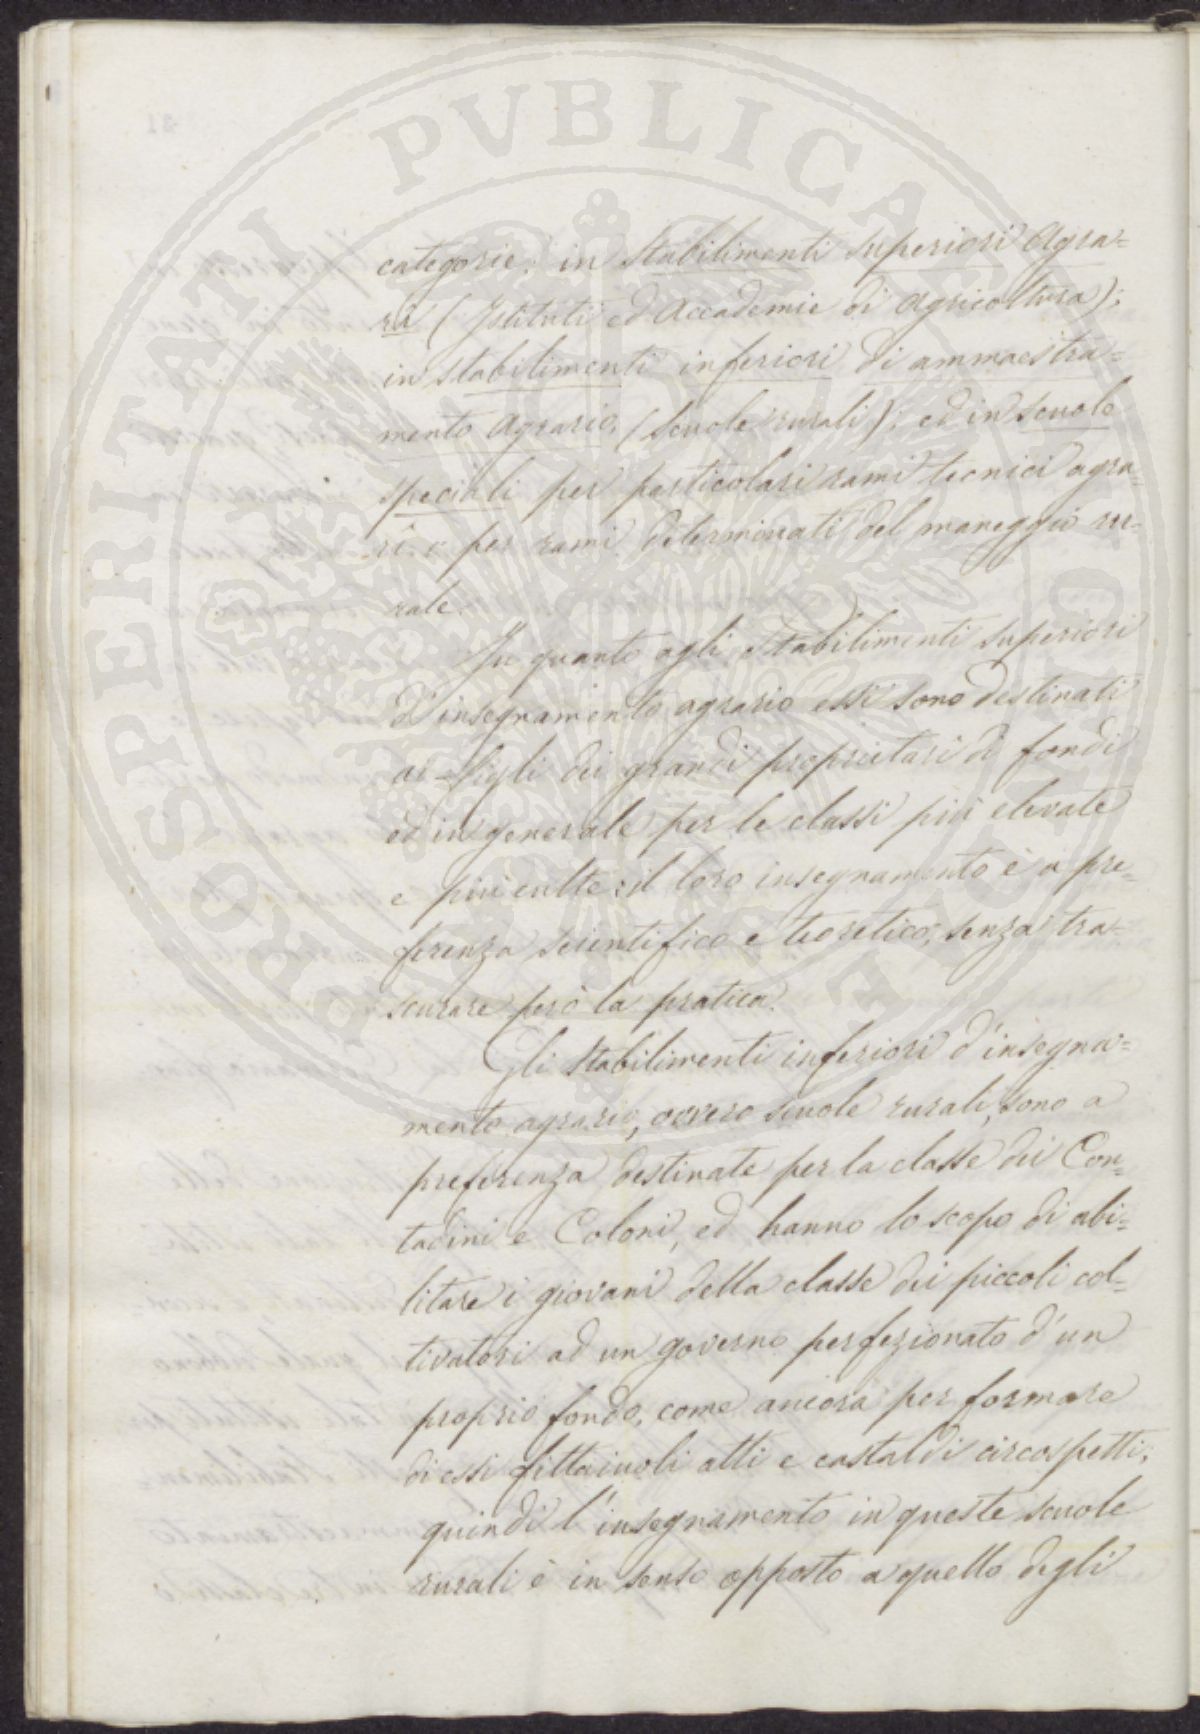 PROSPERITATI PVBLICAE AVGENDAE
categorie: in Stabilimenti superiori Agra=
rî (Istituti ed Accademie di Agricoltura);
in stabilimenti inferiori di ammaestra=
mento Agrario, (Scuole rurali); ed in scuole
speciali per particolari rami tecnici agra=
rî e per rami determinati del maneggio ru=
rale.
In quanto agli Stabilimenti superiori
d'insegnamento agrario essi sono destinati
ai figli dei grandi proprietari di fondi
ed in generale per le classi più elevate
e più culte; il loro insegnamento è a pre=
ferenza scientifico e teoretico, senza tra=
scurare però la pratica.
Gli Stabilimenti inferiori d'insegna=
mento agrario, ovvero scuole rurali, sono a
preferenza destinate per la classe dei Con=
tadini e Coloni, ed hanno lo scopo di abi=
litare i giovani della classe dei piccoli col=
tivatori ad un governo perfezionato d'un
proprio fondo, come ancora per formare
di essi fittaiuoli atti e castaldi circospetti;
quindi l'insegnamento in queste scuole
rurali è in senso opposto a quello degli